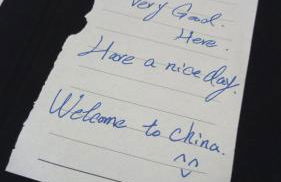 Very Good.
Here.
Have a nice day.
Welcome to China.
^^